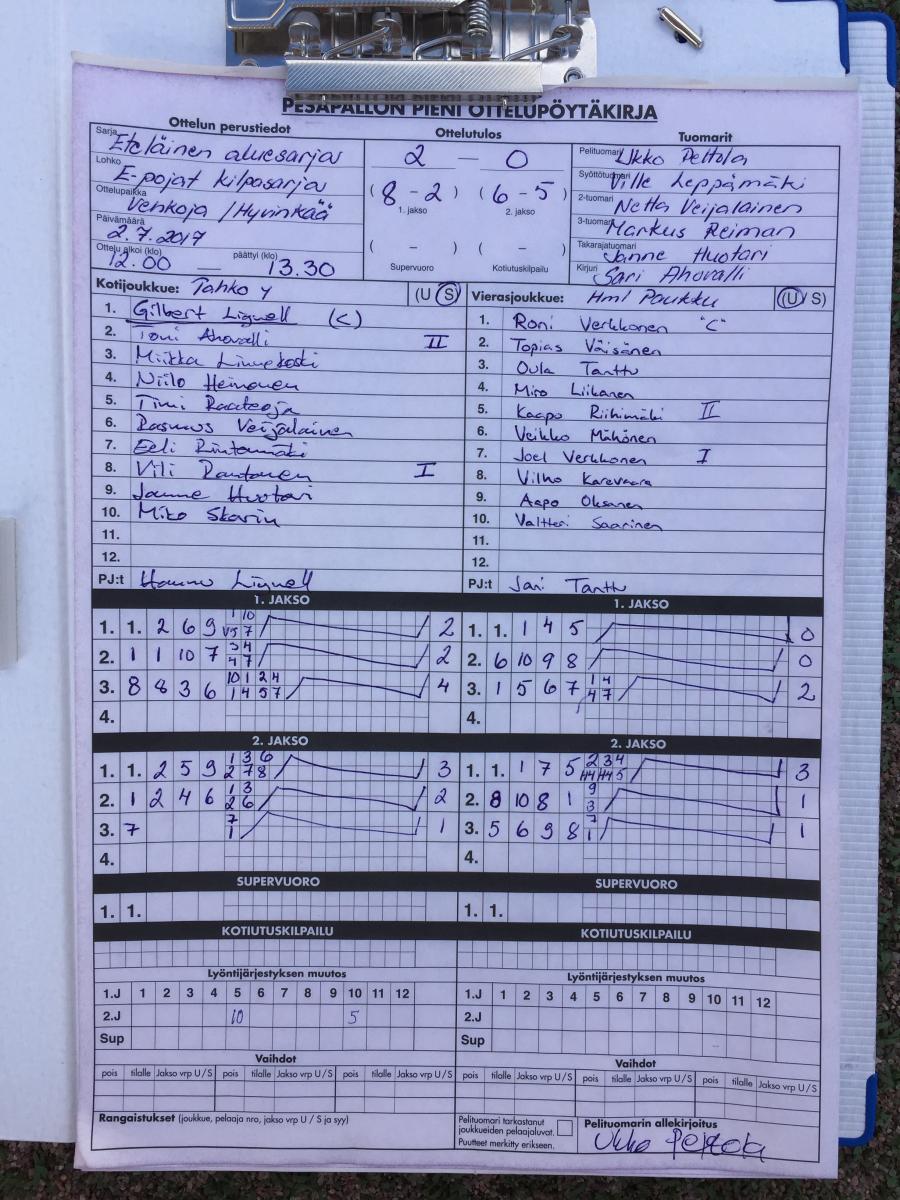 PESÄPALLON PIENI OTTELUPÖYTÄKIRJA
Ottelun perustiedot
Sarja Eteläinen aluesarja
Lohko E-pojat kilpasarja
Ottelupaikka Venkoja / Hyvinkää
Päivämäärä 2.7.2017
Ottelu alkoi (klo) 12.00 — päättyi (klo) 13.30
Ottelutulos
2 — 0
(8 - 2) (6 - 5)
1. jakso 2. jakso
( - ) ( - )
Supervuoro Kotiutuskilpailu
Tuomarit
Pelituomari Ukko Peltola
Syöttötuomari Ville Leppämäki
2-tuomari Netta Veijalainen
3-tuomari Markus Reiman
Takarajatuomari Janne Huotari
Kirjuri Sari Ahovalli
Kotijoukkue: Tahko Y (U / S)
1. Gilbert Lignell (C)
2. Toni Ahovalli II
3. Miikka Linnekoski
4. Niilo Heinonen
5. Timi Raateoja
6. Rasmus Veijalainen
7. Eeli Rintamäki
8. Vili Rantanen I
9. Janne Huotari
10. Miko Skarin
11.
12.
PJ:t Hannu Lignell
Vierasjoukkue: Hml Paukku (U / S)
1. Roni Verkkonen "C"
2. Topias Väisänen
3. Oula Tanttu
4. Miro Liikanen
5. Kaapo Riihimäki II
6. Veikko Mähönen
7. Joel Verkkonen I
8. Vilho Karevaara
9. Aapo Oksanen
10. Valtteri Saarinen
11.
12.
PJ:t Jari Tanttu
1. JAKSO
1. 1. 2 6 9 1 10 V5 7 2
2. 1 1 10 7 3 4 4 7 2
3. 8 8 3 6 10 1 2 4 1 4 5 7 4
4.
1. JAKSO
1. 1. 1 4 5 0
2. 6 10 9 8 0
3. 1 5 6 7 1 4 4 7 2
4.
2. JAKSO
1. 1. 2 5 9 1 3 6 2 7 8 3
2. 1 2 4 6 1 3 2 6 2
3. 7 7 1 1
4.
2. JAKSO
1. 1. 1 7 5 2 3 4 5 3
2. 8 10 8 1 9 3 1
3. 5 6 9 8 7 1 1
4.
SUPERVUORO
1. 1.
SUPERVUORO
1. 1.
KOTIUTUSKILPAILU
KOTIUTUSKILPAILU
Lyöntijärjestyksen muutos
1.J 1 2 3 4 5 6 7 8 9 10 11 12
2.J 10 5
Sup
Lyöntijärjestyksen muutos
1.J 1 2 3 4 5 6 7 8 9 10 11 12
2.J
Sup
Vaihdot
pois tilalle Jakso vrp U / S pois tilalle Jakso vrp U / S pois tilalle Jakso vrp U / S
Vaihdot
pois tilalle Jakso vrp U / S pois tilalle Jakso vrp U / S pois tilalle Jakso vrp U / S
Rangaistukset (joukkue, pelaaja nro, jakso vrp U / S ja syy)
Pelituomari tarkastanut
joukkueiden pelaajaluvat.
Puutteet merkitty erikseen.
Pelituomarin allekirjoitus
Ukko Peltola